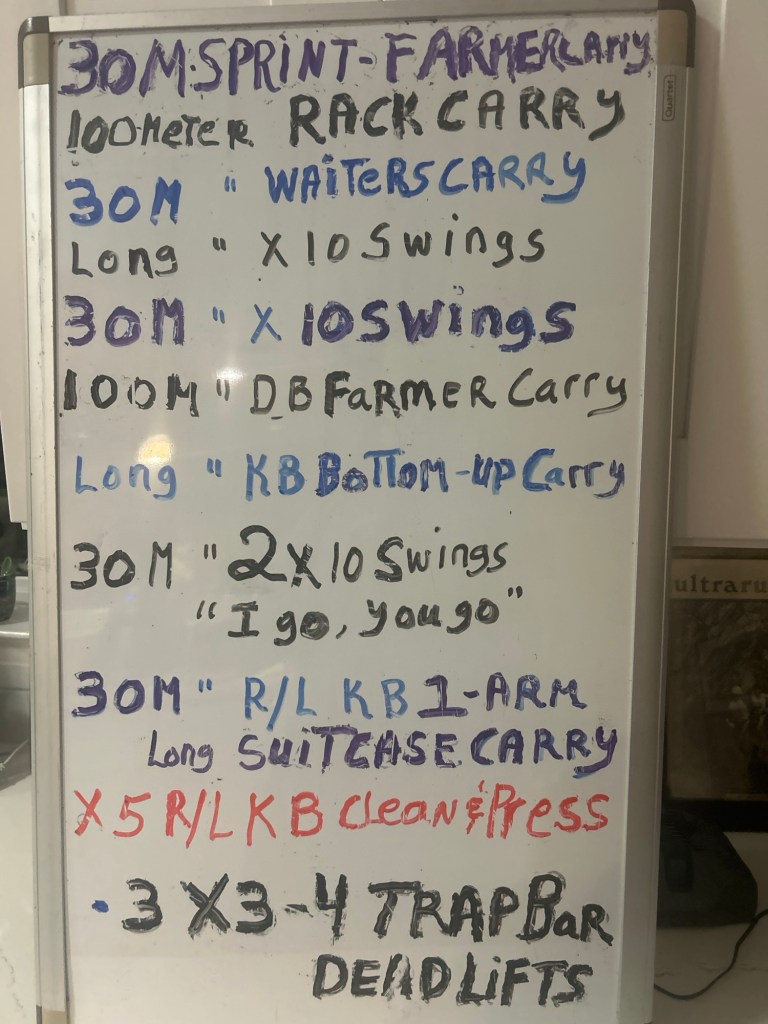 30M·SPRINT-FARMERCARRY
Quartet
100METER RACK CARRY
30M " WAITERSCARRY
Long " X 10 Swings
30M " X 10 Swings
100M " DB FaRmeR Carry
Long " KB BoTTom-up Carry
30M " 2X10 Swings
"I go, you go"
ultraru
30M " R/L KB 1-ARM
Long SUITCASE CARRY
X 5 R/L KB Clean & Press
• 3 X 3-4 TRAP BaR
DEADLiFTS